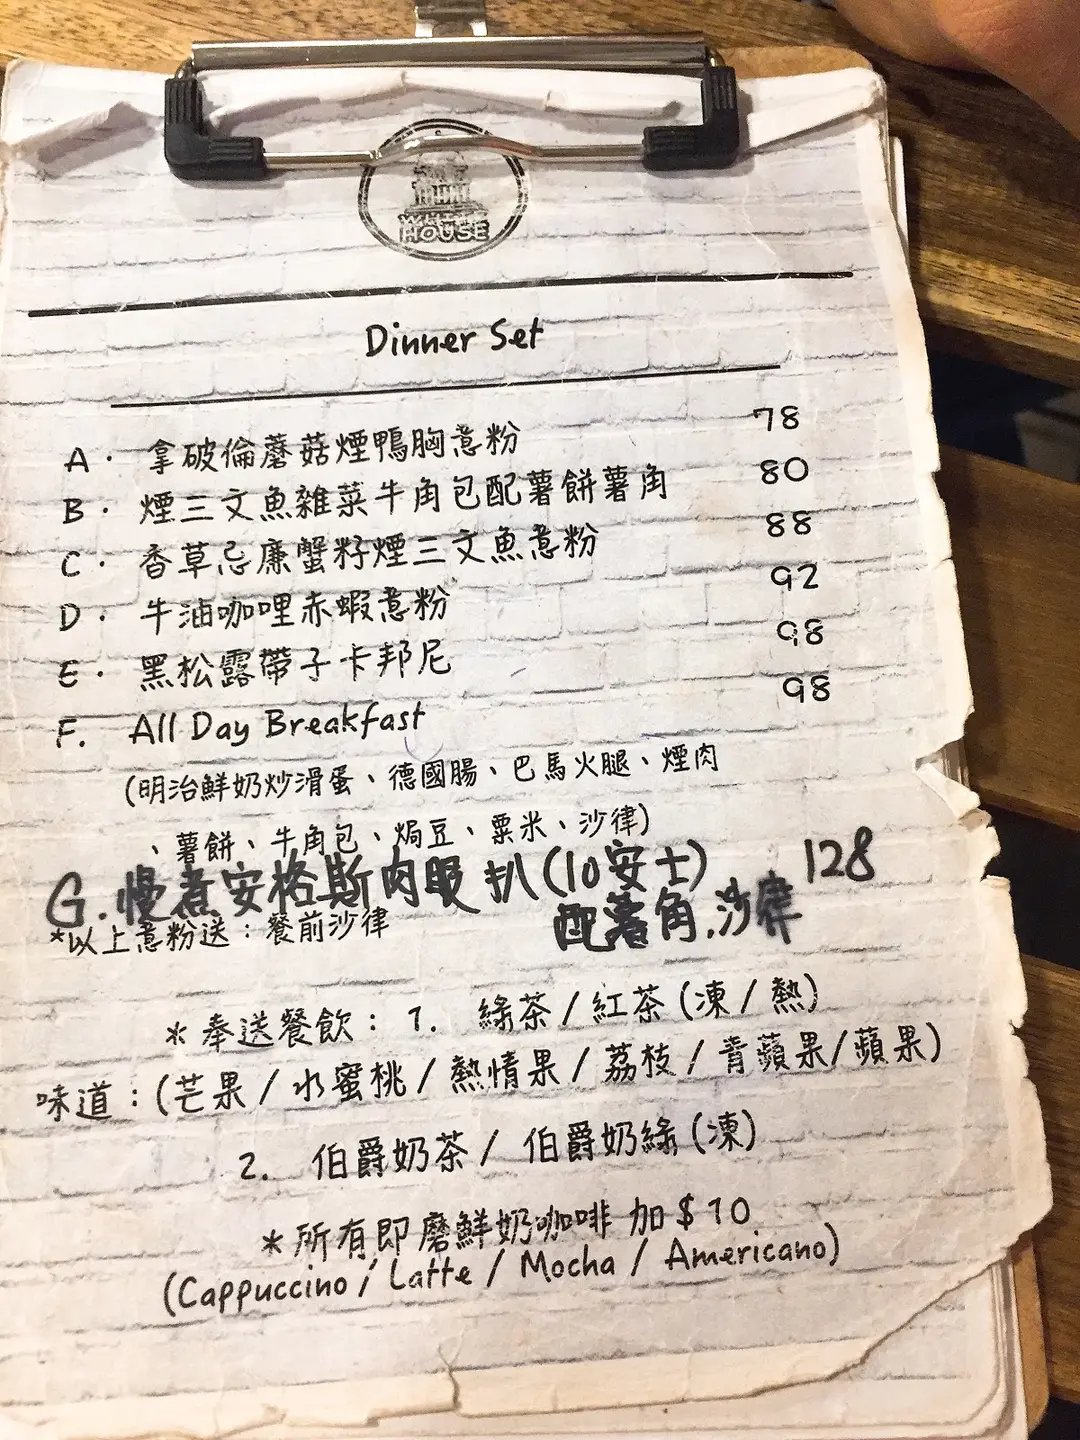 WHITE HOUSE
Dinner Set
A. 拿破倫蘑菇煙鴨胸意粉 78
B. 煙三文魚雜菜牛角包配薯餅薯角 80
C. 香草忌廉蟹籽煙三文魚意粉 88
D. 牛油咖哩赤蝦意粉 92
E. 黑松露帶子卡邦尼 98
F. All Day Breakfast 98
(明治鮮奶炒滑蛋、德國腸、巴馬火腿、煙肉
、薯餅、牛角包、焗豆、粟米、沙律)
G. 慢煮安格斯肉眼扒(10安士) 128
配薯角,沙律
*以上意粉送:餐前沙律
*奉送餐飲: 1. 綠茶/紅茶(凍/熱)
味道:(芒果/水蜜桃/熱情果/荔枝/青蘋果/蘋果)
2. 伯爵奶茶/伯爵奶綠(凍)
*所有即磨鮮奶咖啡 加$10
(Cappuccino/Latte/Mocha/Americano)